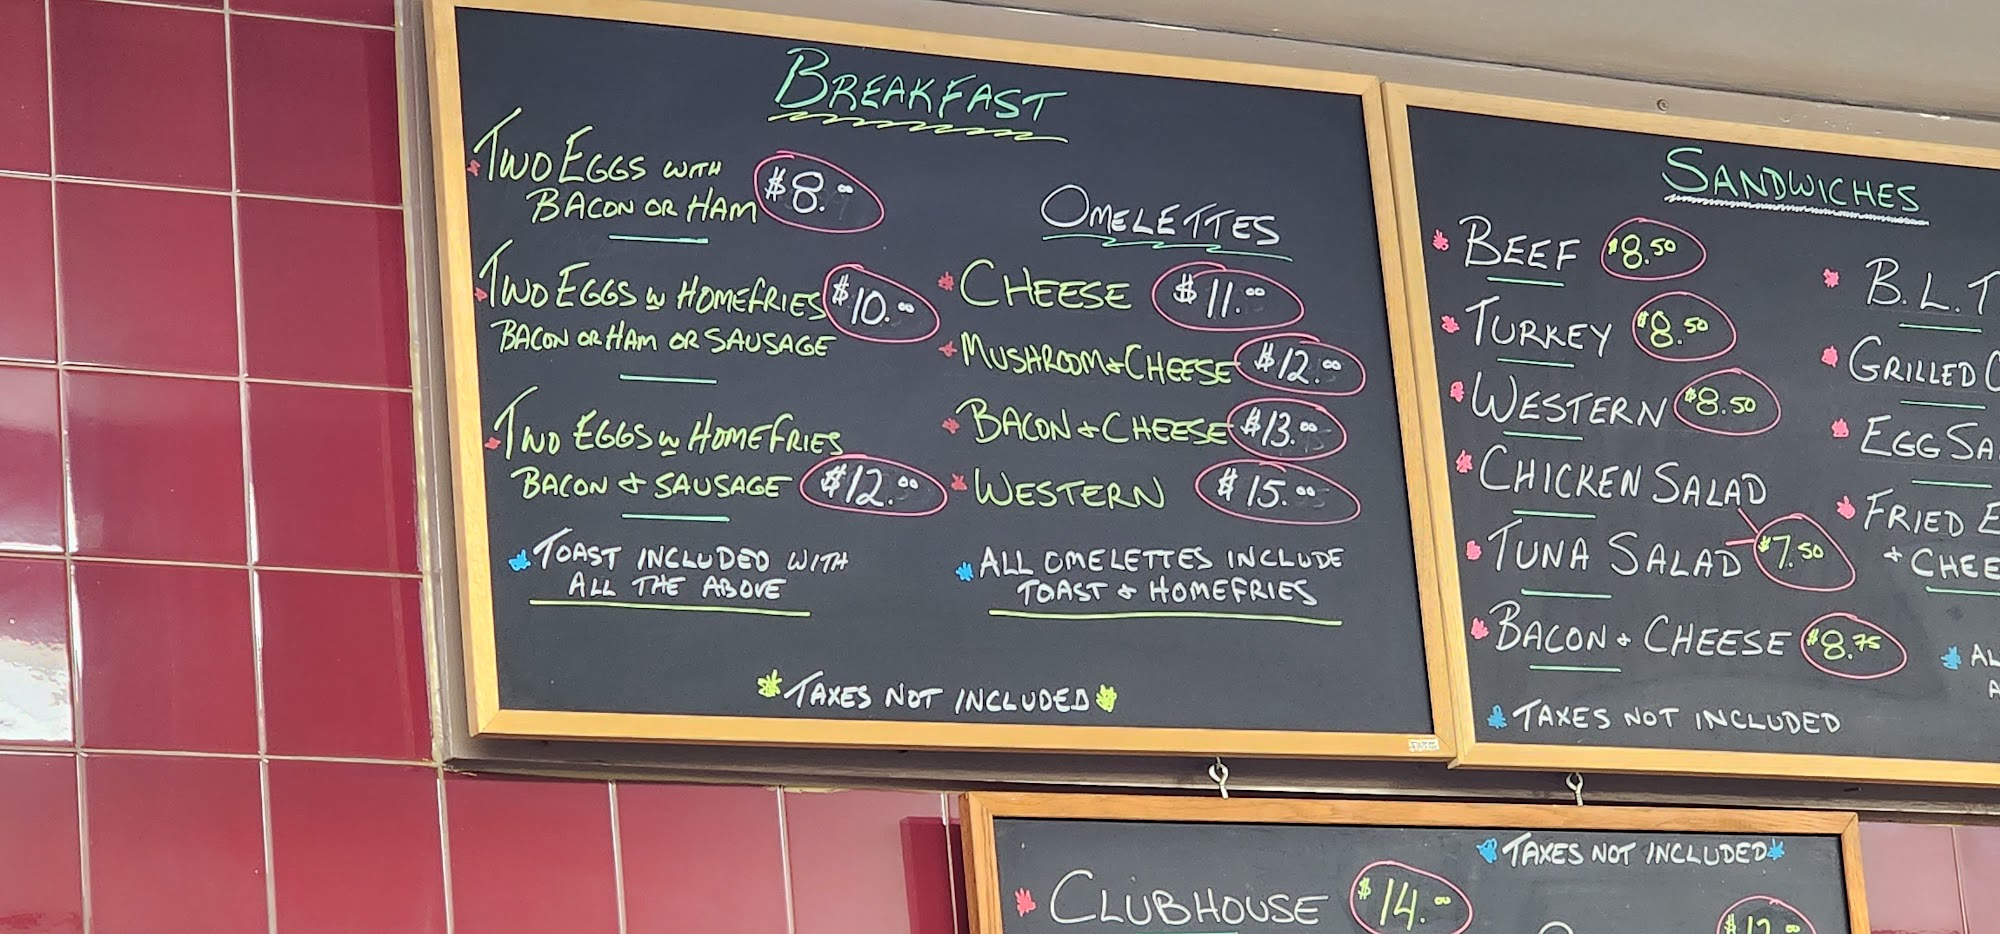 BREAKFAST
TWO EGGS WITH
BACON OR HAM $8.00
TWO EGGS W HOMEFRIES $10.00
BACON OR HAM OR SAUSAGE
TWO EGGS W HOMEFRIES
BACON & SAUSAGE $12.00
TOAST INCLUDED WITH
ALL THE ABOVE
OMELETTES
CHEESE $11.00
MUSHROOM & CHEESE $12.00
BACON & CHEESE $13.00
WESTERN $15.00
ALL OMELETTES INCLUDE
TOAST & HOMEFRIES
TAXES NOT INCLUDED
SANDWICHES
BEEF $8.50
TURKEY $8.50
WESTERN $8.50
CHICKEN SALAD
TUNA SALAD $7.50
BACON & CHEESE $8.75
TAXES NOT INCLUDED
B.L.T
GRILLED
EGG
FRIED
TAXES NOT INCLUDED
CLUBHOUSE $14.00